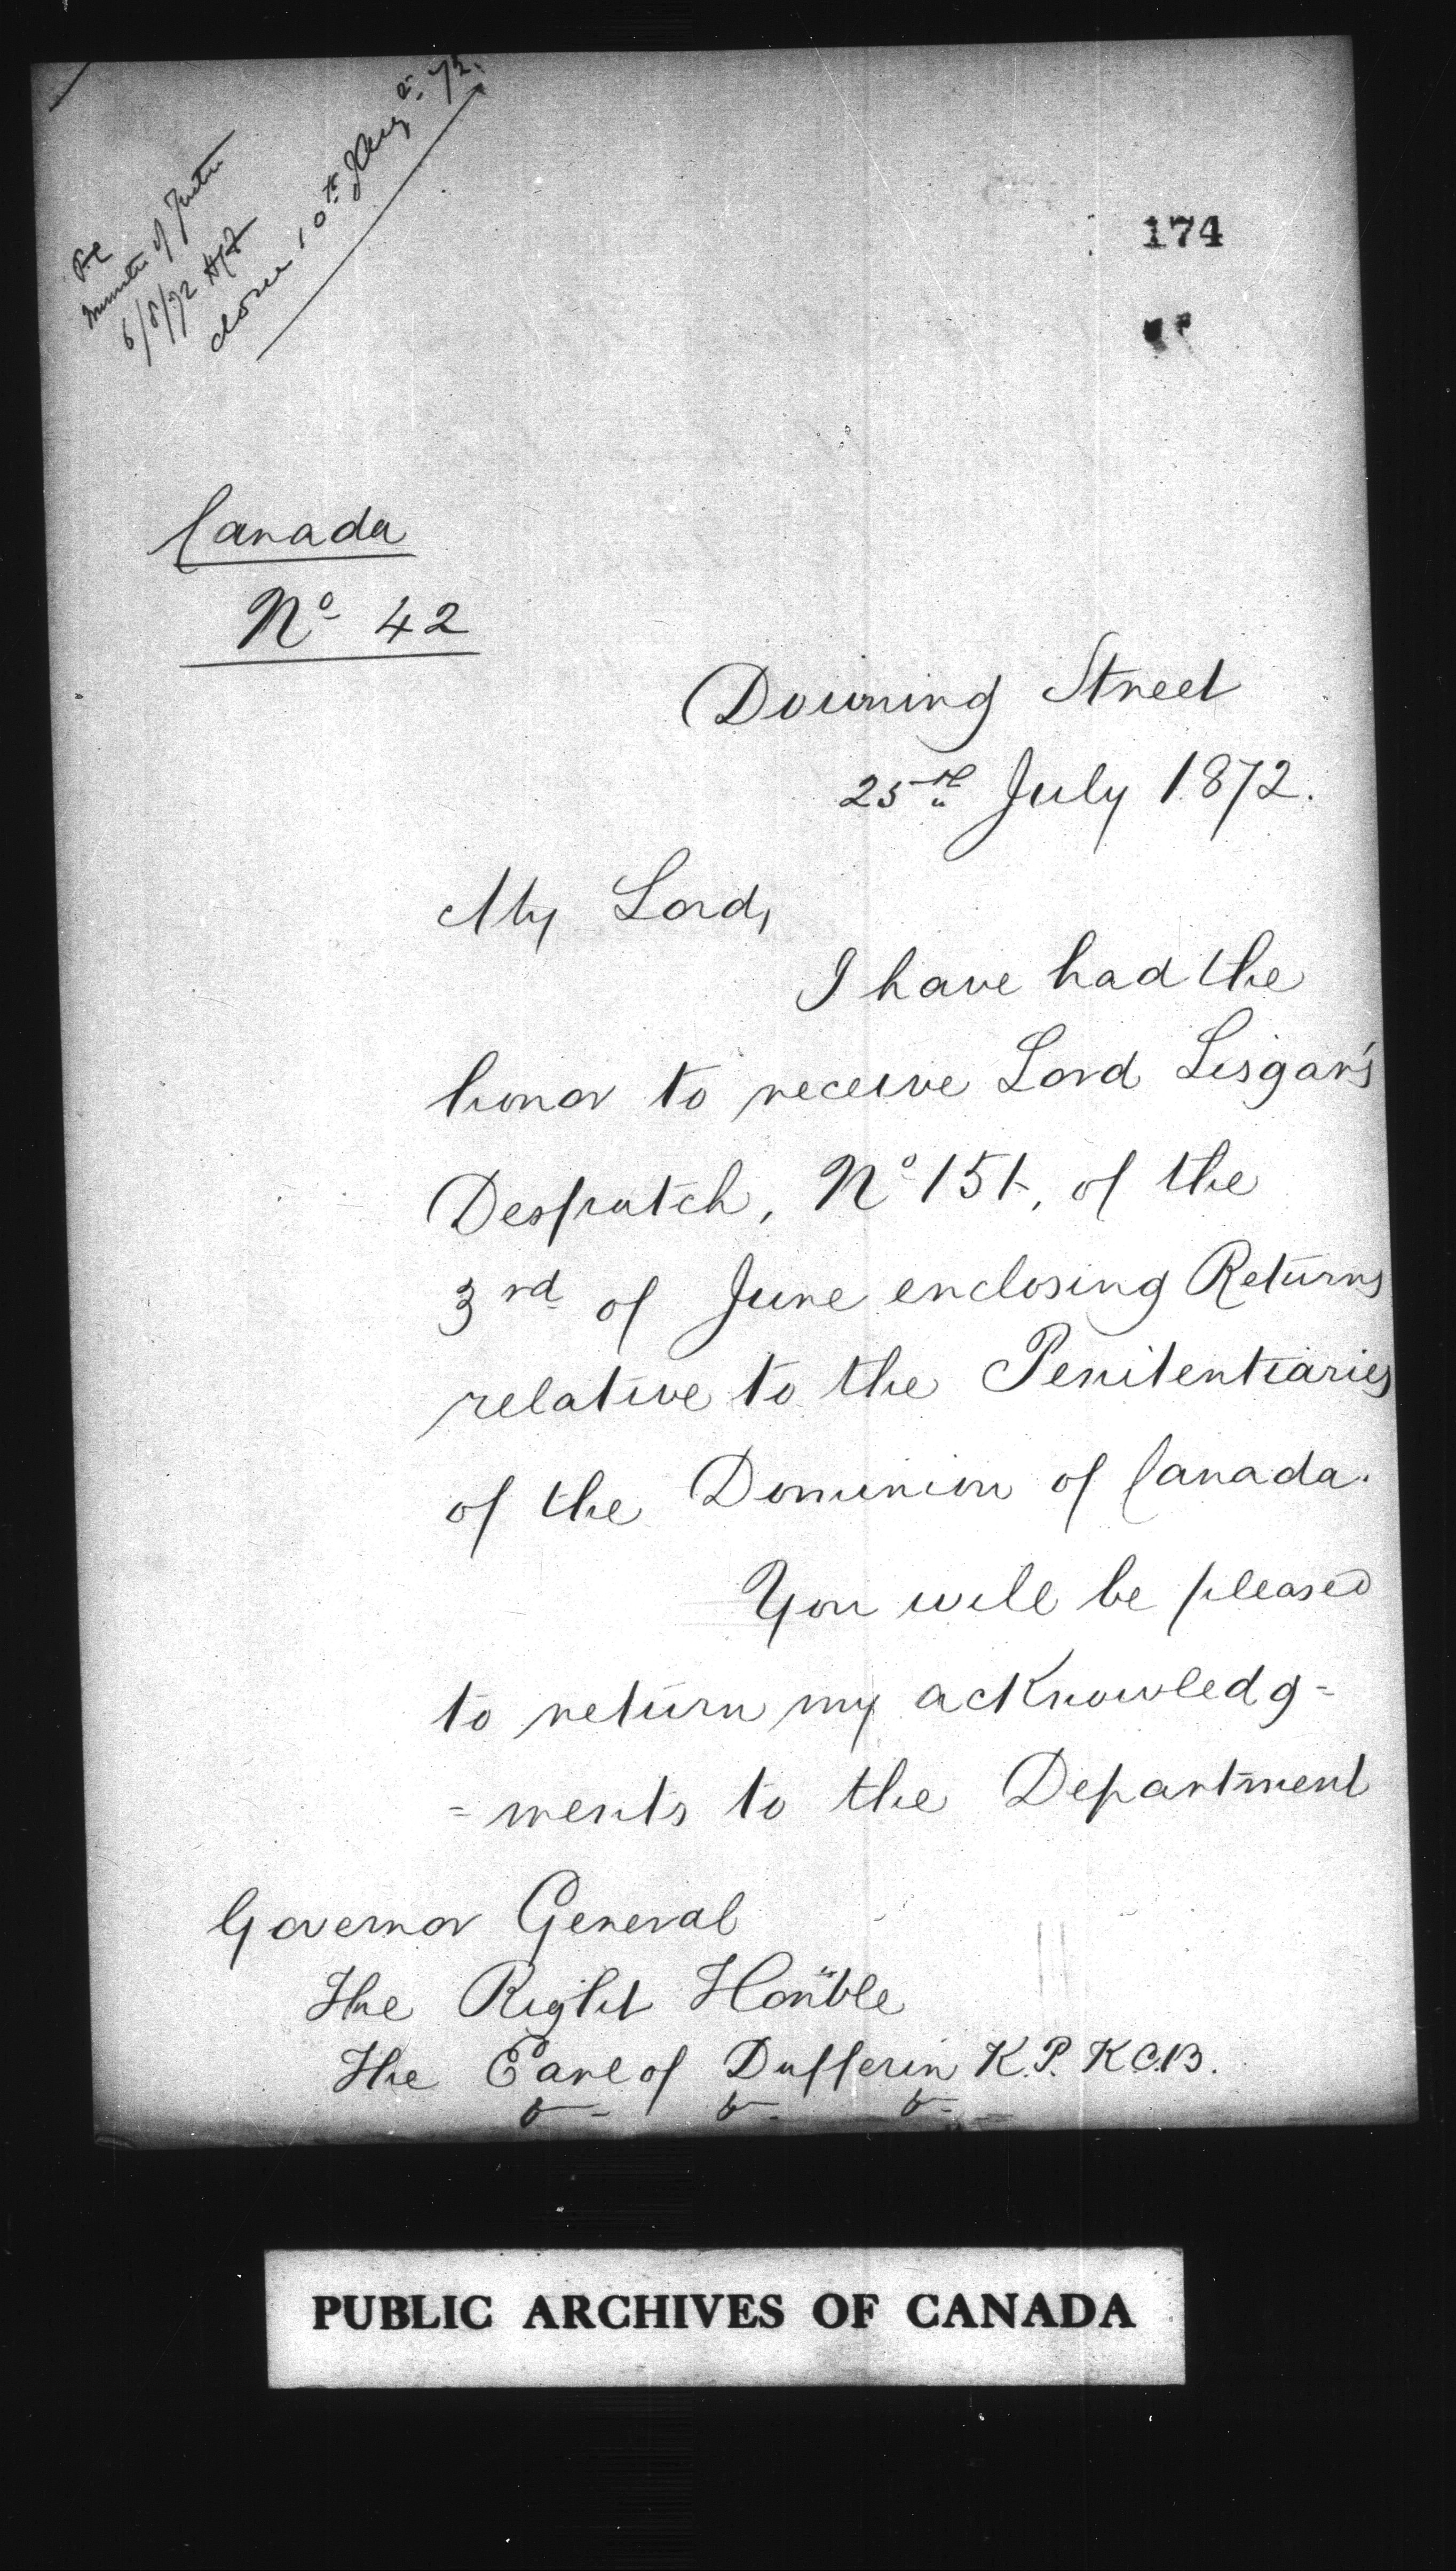 Minister of Justice
6/8/72
10th Aug 72.
174
Canada
No 42
Downing Street
25th July 1872.
My Lord,
I have had the
honor to receive Lord Lisgar's
Despatch, No 151, of the
3rd of June enclosing Returns
relative to the Penitentiaries
of the Dominion of Canada.
You will be pleased
to return my acknowledg=
=ments to the Department
Governor General
The Right Honble
The Earl of Dufferin K.P. K.C.B.
PUBLIC ARCHIVES OF CANADA